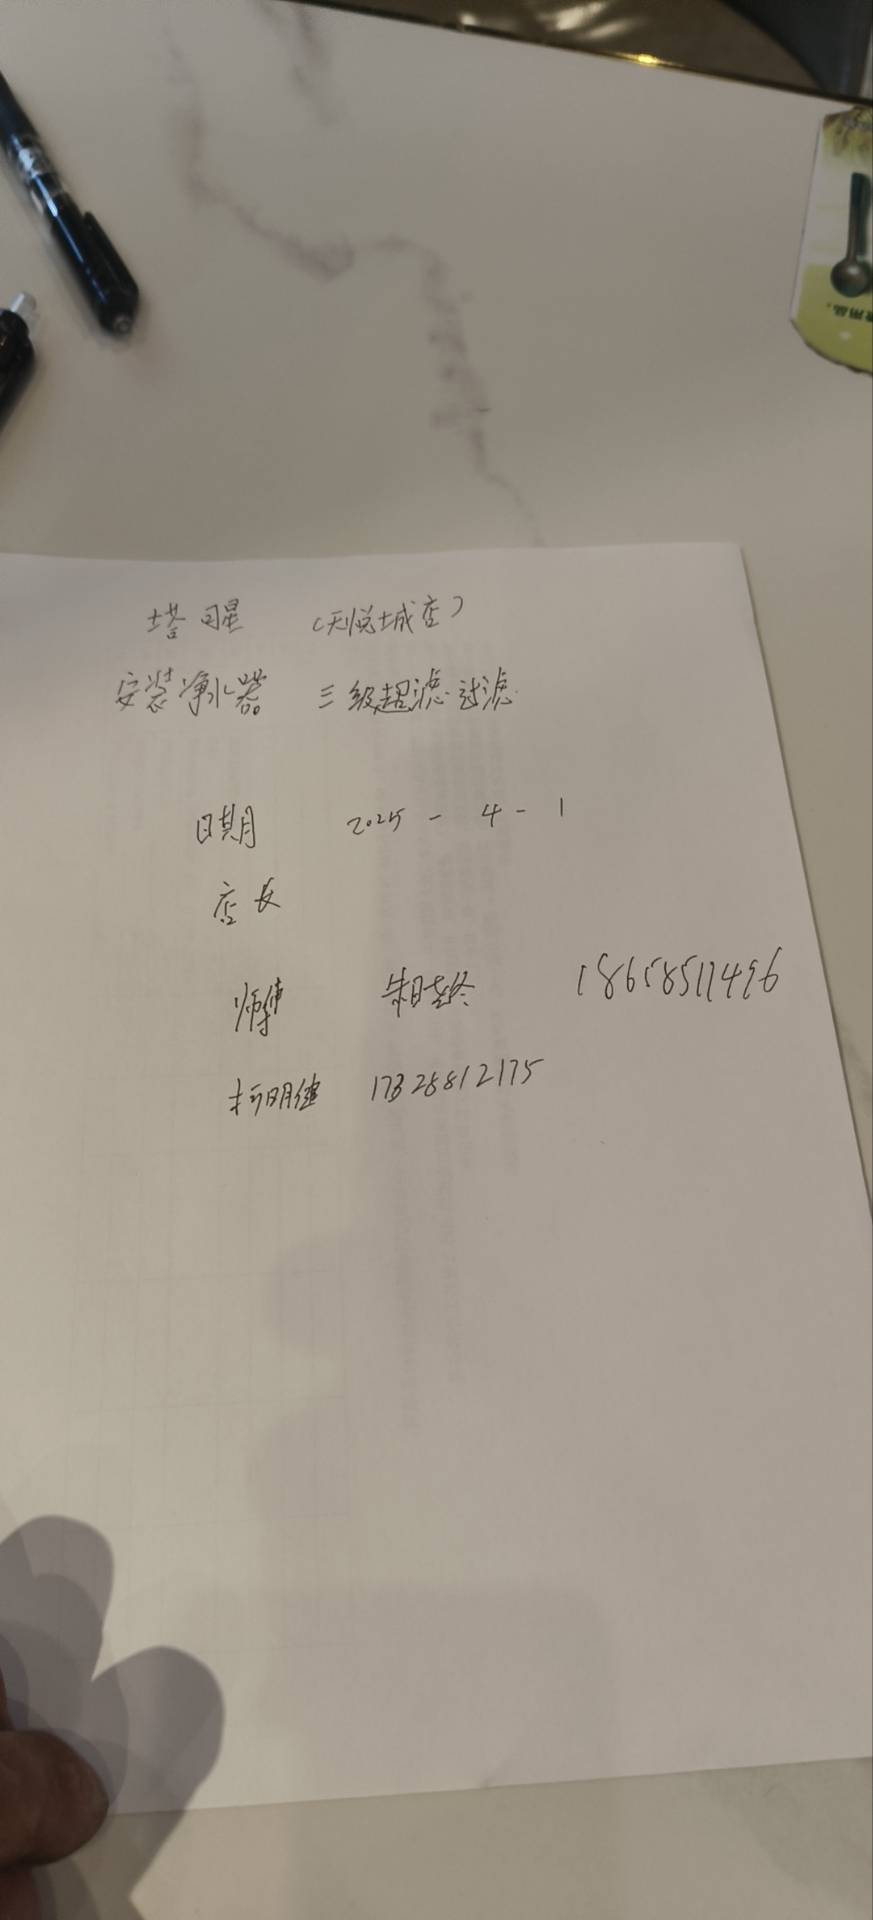 塔司星 （天悦城店）
安装净水器 三级超滤过滤
日期 2025-4-1
店长
师傅 18658511496
柯明健 17328812175
用品.